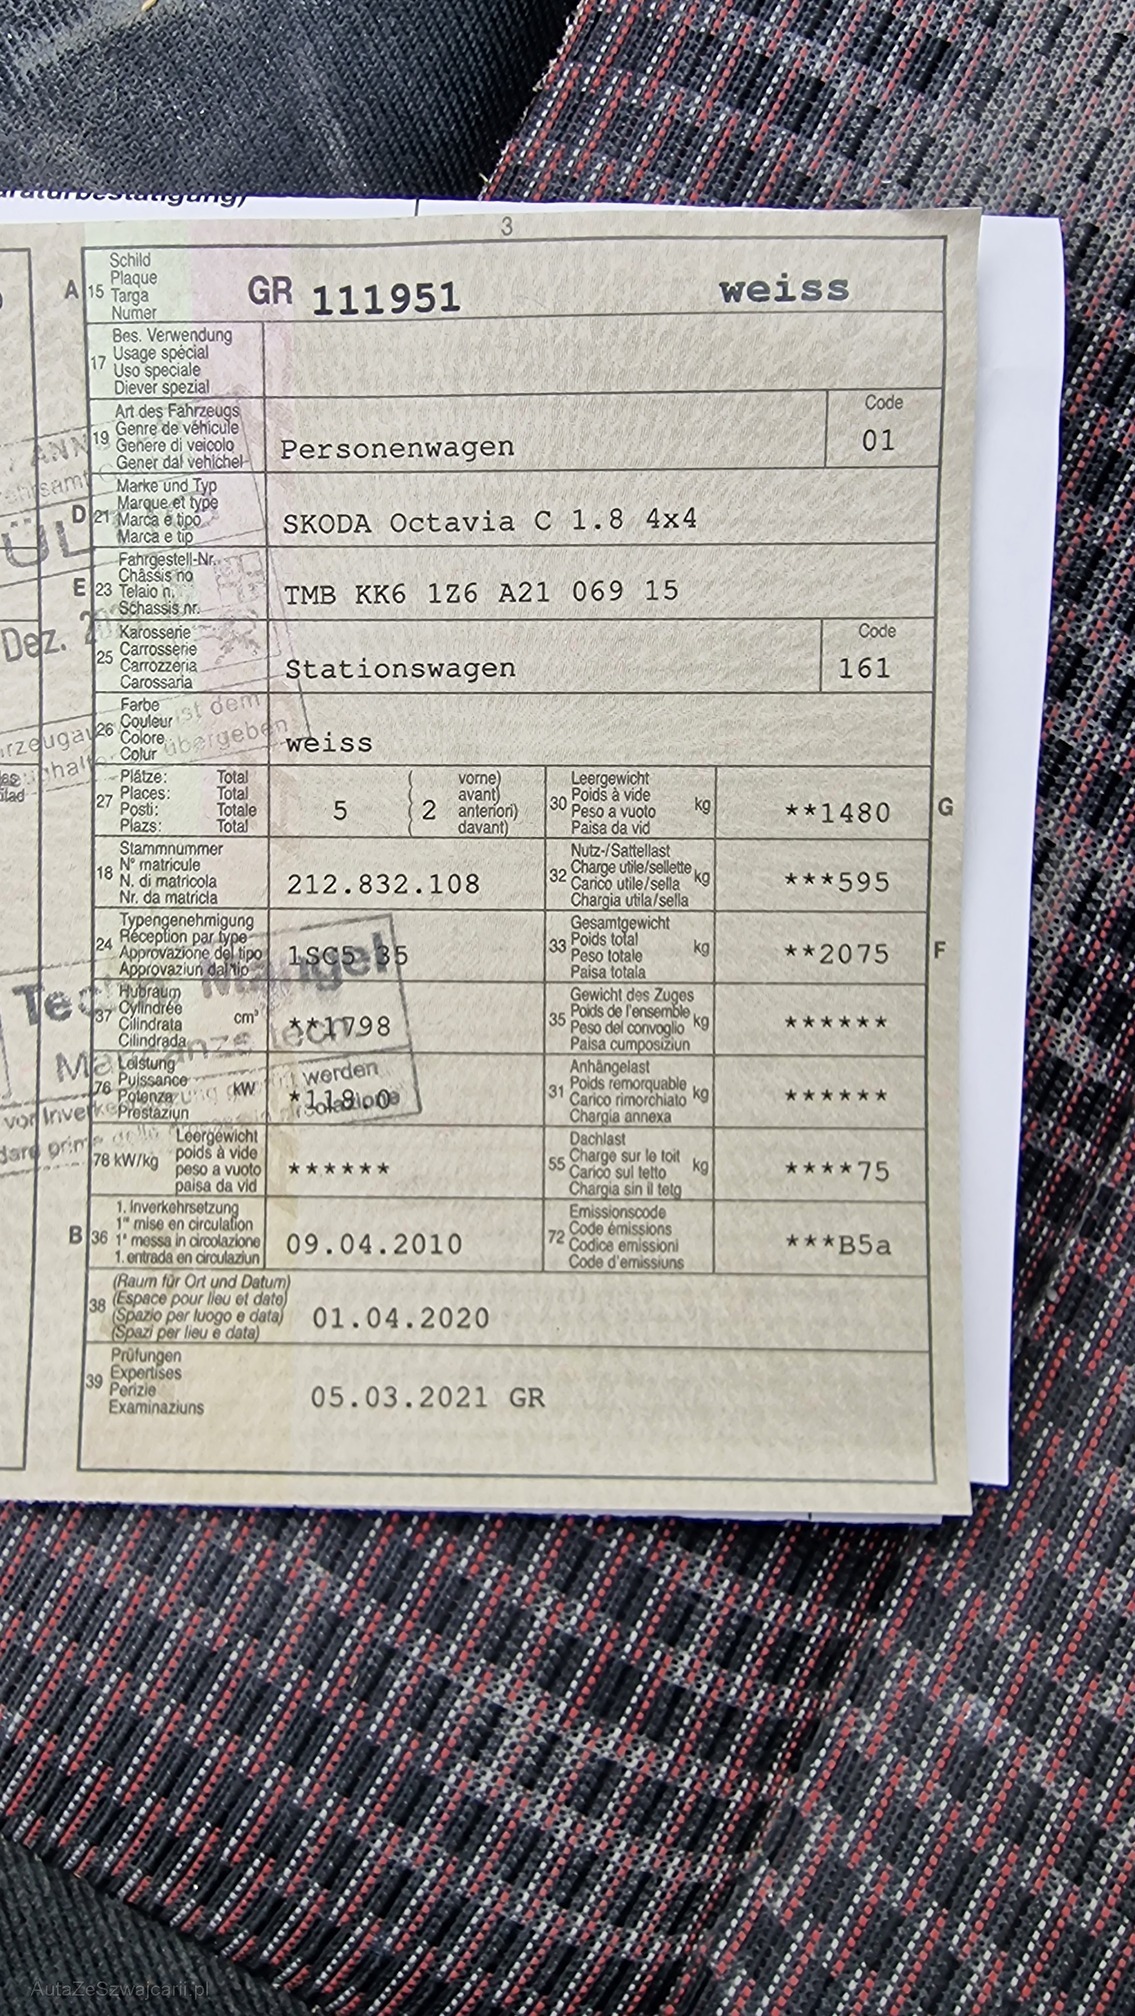 3
A 15 Schild
Plaque
Targa
Numer
GR 111951 weiss
17 Bes. Verwendung
Usage spécial
Uso speciale
Diever spezial
19 Art des Fahrzeugs
Genre de véhicule
Genere di veicolo
Gener dal vehichel
Personenwagen
Code
01
D 21 Marke und Typ
Marque et type
Marca e tipo
Marca e tip
SKODA Octavia C 1.8 4x4
E 23 Fahrgestell-Nr.
Châssis no
Telaio n.
Schassis nr.
TMB KK6 1Z6 A21 069 15
25 Karosserie
Carrosserie
Carrozzeria
Carossaria
Stationswagen
Code
161
26 Farbe
Couleur
Colore
Colur
weiss
27 Plätze: Total
Places: Total
Posti: Totale
Plazs: Total
5 ( 2 vorne)
avant)
anteriori)
davant)
30 Leergewicht
Poids à vide
Peso a vuoto
Paisa da vid
kg
**1480
G
18 Stammnummer
N° matricule
N. di matricola
Nr. da matricla
212.832.108
32 Nutz-/Sattellast
Charge utile/sellette
Carico utile/sella
Chargia utila/sella
kg
***595
24 Typengenehmigung
Réception par type
Approvazione del tipo
Approvaziun dal tip
1SC5 35
33 Gesamtgewicht
Poids total
Peso totale
Paisa totala
kg
**2075
F
37 Hubraum
Cylindrée
Cilindrata
Cilindrada
cm³
**1798
35 Gewicht des Zuges
Poids de l'ensemble
Peso del convoglio
Paisa cumposiziun
kg
******
76 Leistung
Puissance
Potenza
Prestaziun
kW
*118.0
31 Anhängelast
Poids remorquable
Carico rimorchiato
Chargia annexa
kg
******
78 kW/kg
Leergewicht
poids à vide
peso a vuoto
paisa da vid
******
55 Dachlast
Charge sur le toit
Carico sul tetto
Chargia sin il tetg
kg
****75
B 36 1. Inverkehrsetzung
1re mise en circulation
1a messa in circolazione
1. entrada en circulaziun
09.04.2010
72 Emissionscode
Code émissions
Codice emissioni
Code d'emissiuns
***B5a
38 (Raum für Ort und Datum)
(Espace pour lieu et date)
(Spazio per luogo e data)
(Spazi per lieu e data)
01.04.2020
39 Prüfungen
Expertises
Perizie
Examinaziuns
05.03.2021 GR
Dez.
ist dem
übergeben
Mangel
werden
AutaZeSzwajcarii.pl